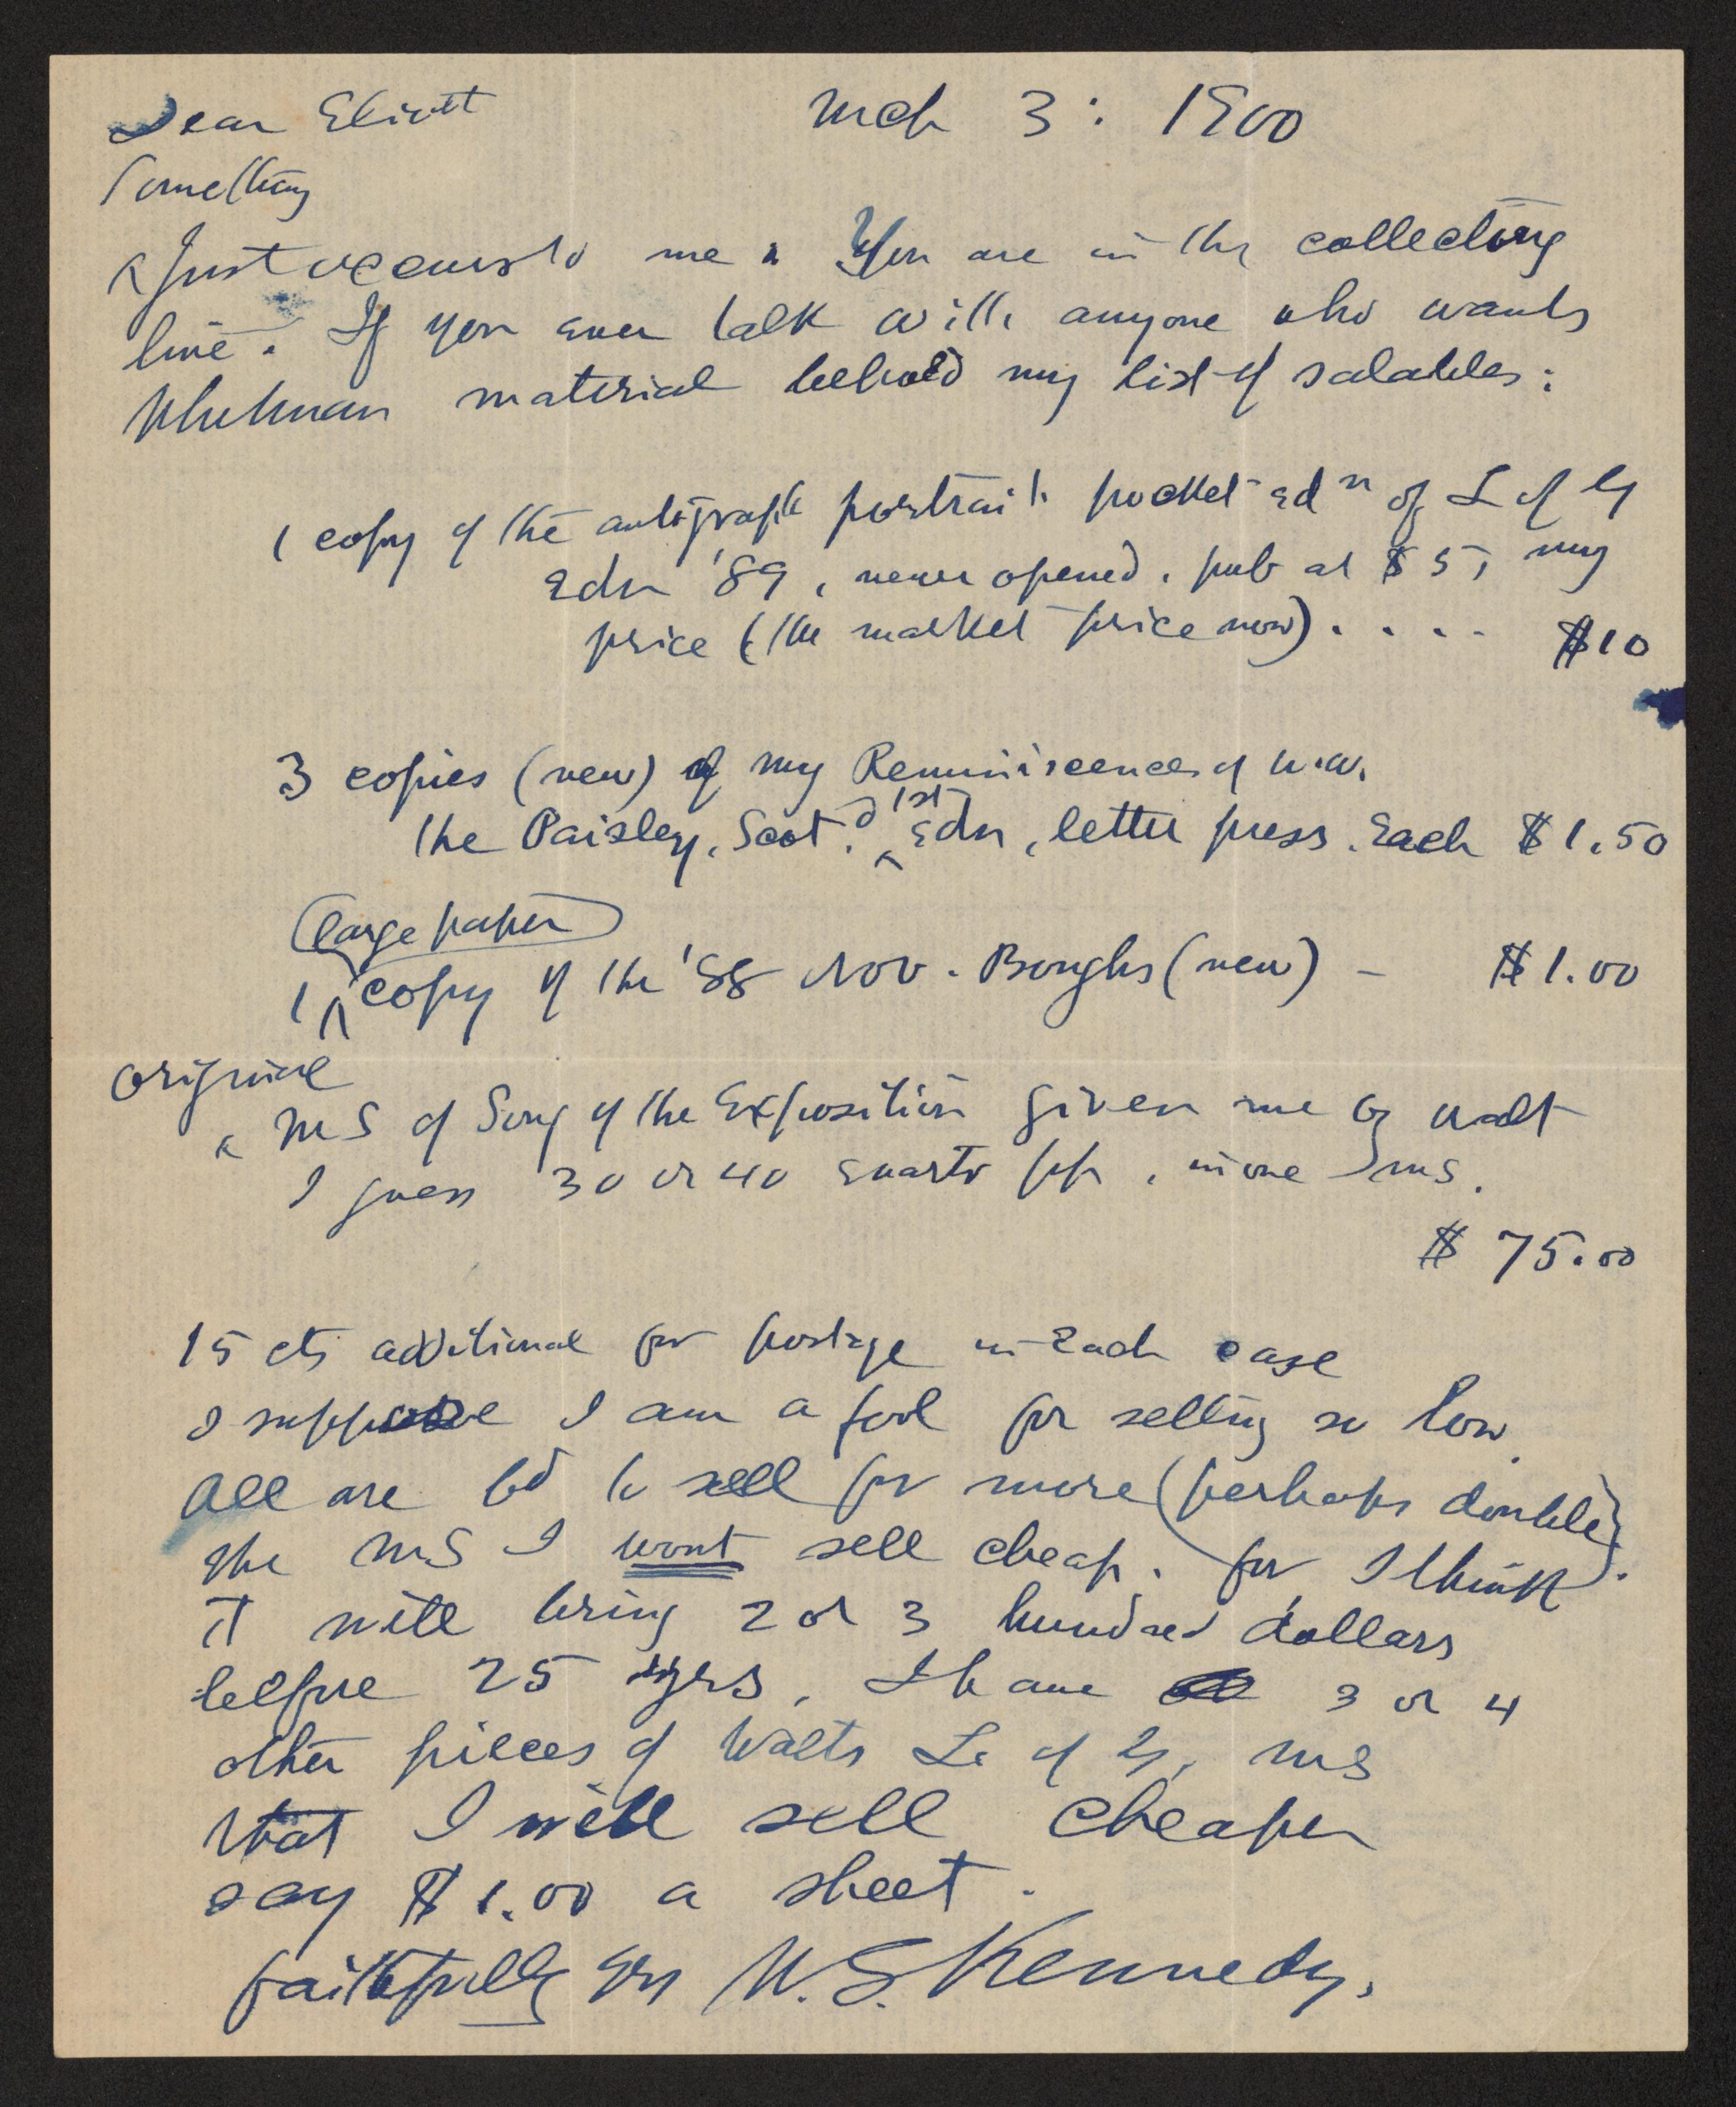 Dear Elliott Mch 3: 1900
Something
^ Just occurs to me. You are in the collecting
line. If you ever talk with anyone who wants
Whitman material behold my list of salables:
1 copy of the autograph portrait pocket edn of L of G
Edn '89, never opened. pub at $5, my
price (the market price now) . . . . $10
3 copies (new) of my Reminiscences of W.W.
1st
the Paisley, Scotd. ^ Edn, letter press. Each $1.50
large paper
1 ^ copy of the '88 Nov. Boughs (new) - $1.00
Original
^ MS of Song of the Exposition given me by Walt
I guess 30 or 40 quarto pp, in one ms.
$75.00
15 cts additional for postage in each case
I suppose I am a fool for selling so low
All are bd to sell for more (perhaps double).
The MS I wont sell cheap. for I think
it will bring 2 or 3 hundred dollars
before 25 yrs. I have 3 or 4
other pieces of Walts L. of G. MS
that I will sell cheaper
say $1.00 a sheet.
faithfully yrs W. S. Kennedy.